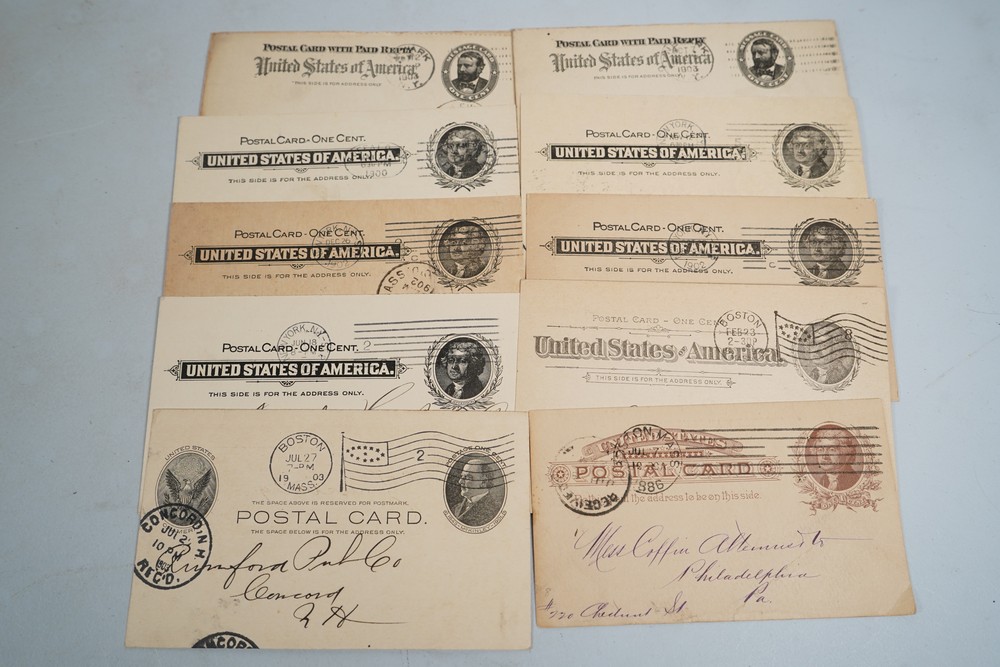 POSTAL CARD WITH PAID REPLY
United States of America.
THIS SIDE IS FOR THE ADDRESS ONLY.
ONE CENT
POSTAL CARD WITH PAID REPLY
United States of America
THIS SIDE IS FOR THE ADDRESS ONLY.
1903
POSTAL CARD - ONE CENT.
UNITED STATES OF AMERICA.
THIS SIDE IS FOR THE ADDRESS ONLY.
1900
POSTAL CARD - ONE CENT.
UNITED STATES OF AMERICA.
THIS SIDE IS FOR THE ADDRESS ONLY.
POSTAL CARD - ONE CENT.
UNITED STATES OF AMERICA.
THIS SIDE IS FOR THE ADDRESS ONLY.
DEC 26
C
POSTAL CARD - ONE CENT.
UNITED STATES OF AMERICA.
THIS SIDE IS FOR THE ADDRESS ONLY.
1902
C
POSTAL CARD - ONE CENT.
UNITED STATES OF AMERICA.
THIS SIDE IS FOR THE ADDRESS ONLY.
NEW YORK, N.Y.
JUN 18
2
POSTAL CARD - ONE CENT.
United States of America.
THIS SIDE IS FOR THE ADDRESS ONLY.
BOSTON
FEB 23
2-30P
8
UNITED STATES
BOSTON
JUL 27
7-PM
19 03
MASS.
2
THE SPACE ABOVE IS RESERVED FOR POSTMARK.
POSTAL CARD.
THE SPACE BELOW IS FOR THE ADDRESS ONLY.
CONCORD, N.H.
10 PM
REC'D.
Rumford Pub Co
Concord
N H
POSTAL CARD
the address to be on this side.
BOSTON, MASS.
JUL 7
RECEIVED
Mess Coffin Altemus &
Philadelphia
Pa.
#220 Chestnut St